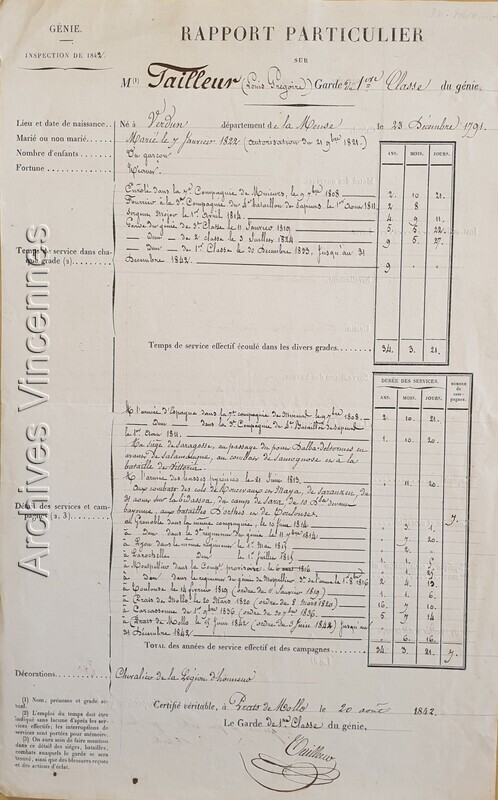 GÉNIE.
INSPECTION DE 1842.
RAPPORT PARTICULIER
SUR
M(1) Tailleur (Louis Grégoire) Garde de 1ère Classe du génie.
Lieu et date de naissance Né à Verdun département de la Meuse le 23 Décembre 1791.
Marié ou non marié Marié le 7 Janvier 1822 (autorisation du 21 9bre 1821.)
Nombre d'enfants Un garçon
Fortune
ANS. MOIS. JOURS.
Enrôlé dans la 7e Compagnie de Mineurs, le 9bre 1808 2. 10 21.
Fourrier à la 3e Compagnie du 4e bataillon de Sapeurs le 1er Août 1811. 2 8
Sergent Major le 1er Avril 1814. 4 9 11
Garde du génie de 3e Classe le 11 Janvier 1819 5. 5 22
Temps de service dans chaque grade (2)
dem de 2e classe le 3 Juillet 1824 9 5 27
dem de 1ère Classe le 30 Décembre 1833, jusqu'au 31
Décembre 1842. 9
Temps de service effectif écoulé dans les divers grades 34. 3. 21.
DURÉE DES SERVICES. NOMBRE de campagnes.
ANS. MOIS. JOURS.
A l'armée d'Espagne dans la 7e compagnie de mineurs le 9bre 1808. 2 10 21.
dem dans la 3e Compagnie du 4e Bataillon de sapeurs
le 1er Août 1811. 1 10 20
Au siège de Saragosse, au passage du pont
avant de Salamanque, au et à la
bataille de Vittoria.
A l'armée des basses pyrénées le 21 Juin 1813. 11 20
aux combats des cols de Roncevaux en Maya, de Sarauren, du
31 août sur la bidassoa, du camp de Sare, le 10 Xbre devant
bayonne, aux batailles d'Orthez et de Toulouse. 7.
Détail des services et campagnes (2, 3.)
à Grenoble dans la même compagnie, le 10 Juin 1814 3. 1.
à dem dans le 3e régiment du génie le 11 7bre 1814. 7 20
à Lyon dans le même régiment le 1er Mai 1815 2.
à Larochelle dem le 1er Juillet 1815
à Montpellier dans la Compie provisoire, le 6 août 1816
à dem dans le régiment du génie de Montpellier 1816 2 4 13.
à Toulouse le 14 février 1819 (ordre du 11 Janvier 1819) 1 1 6
à Prats de Mollo le 20 Mars 1820 (ordre du 8 Mars 1820) 16 7 10
à Carcassonne le 1er 9bre 1836 (ordre du 1836. 5 7 14
à Prats de Mollo le 15 Juin 1842 (ordre du 3 Juin 1842) Jusqu'au
31 décembre 1842. 6. 16
TOTAL des années de service effectif et des campagnes 34. 3. 21. 7.
Décorations. Chevalier de la Légion d'honneur
Certifié véritable, à Prats de Mollo le 20 août 1842.
Le Garde de 1ère Classe du génie,
Tailleur
(1) Nom, prénoms et grade actuel.
(2) L'emploi du temps doit être
indiqué sans lacune d'après les services
effectifs; les interruptions de
services sont portées pour mémoire.
(3) On aura soin de faire mention
dans ce détail des sièges, batailles,
combats auxquels le garde se sera
trouvé, ainsi que des blessures reçues
et des actions d'éclat.
Archives Vincennes